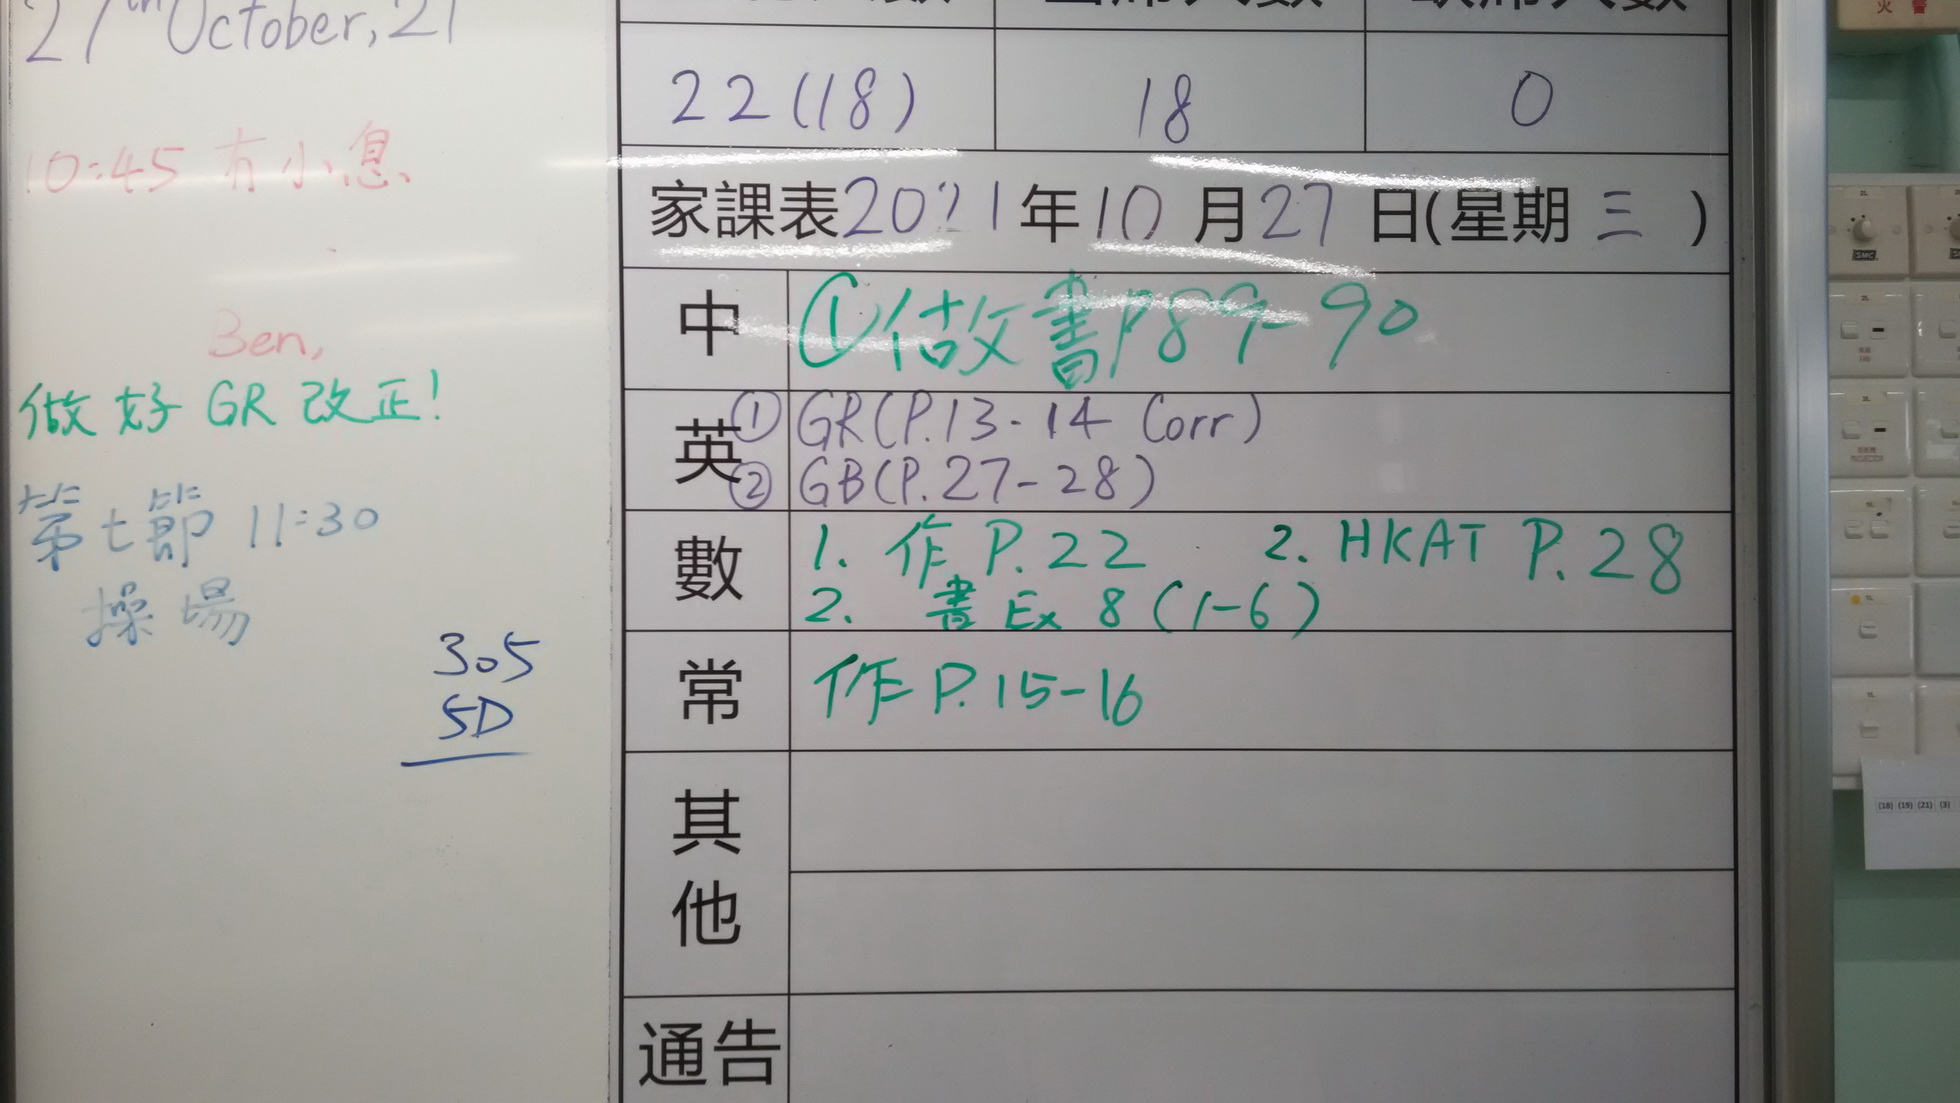 27th October, 21
10:45 有小息
Ben,
做好 GR 改正!
第七節 11:30
操場
305
5D
22(18) 18 0
家課表2021年10月27日(星期三)
中 ①做書P89-90
英 ①GR(P.13-14 Corr)
②GB(P.27-28)
數 1. 作 P.22 2. HKAT P.28
2. 書 Ex 8 (1-6)
常 作 P.15-16
其他
通告
火警
(18) (19) (21) (3)